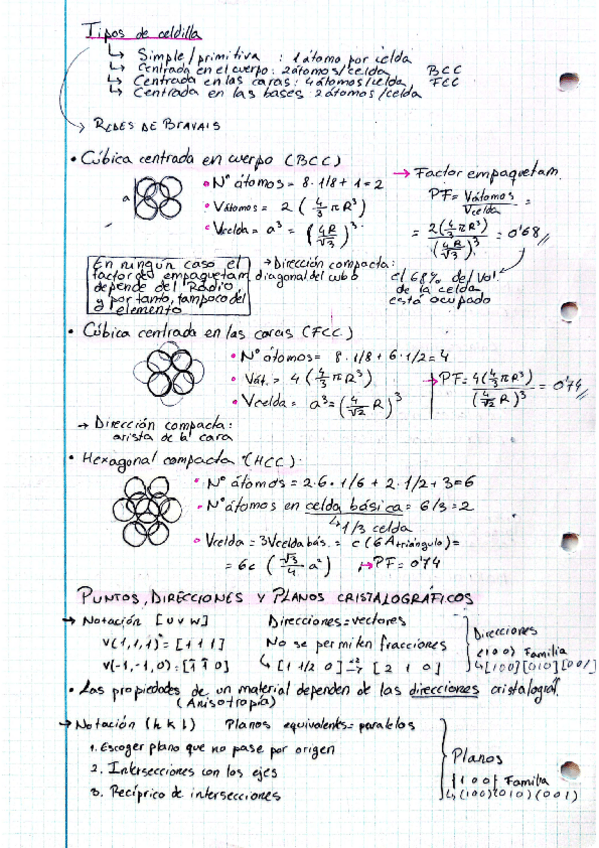 Tipos de celdilla
↳ Simple/primitiva : 1 átomo por celda
↳ Centrada en el cuerpo: 2 átomos/celda BCC
↳ Centrada en las caras: 4 átomos/celda FCC
↳ Centrada en las bases 2 átomos/celda
→ REDES DE BRAVAIS
• Cúbica centrada en cuerpo (BCC)
a
• Nº átomos = 8·1/8 + 1 = 2
• Vátomos = 2 (4/3 π R³)
• Vcelda = a³ = (4R/√3)³
→ Factor empaquetam.
PF = Vátomos/Vcelda =
= 2(4/3 π R³)/(4R/√3)³ = 0'68
el 68% del Vol.
de la celda
está ocupado
En ningún caso el
factor de empaquetam
depende del Radio,
y por tanto, tampoco del
elemento
→ Dirección compacta:
diagonal del cubo
• Cúbica centrada en las caras (FCC)
• Nº átomos = 8·1/8 + 6·1/2 = 4
• Vát. = 4 (4/3 π R³)
• Vcelda = a³ = (4/√2 R)³
→ PF = 4(4/3 π R³)/(4/√2 R)³ = 0'74
→ Dirección compacta:
arista de la cara
• Hexagonal compacta (HCC)
• Nº átomos = 2·6·1/6 + 2·1/2 + 3 = 6
• Nº átomos en celda básica = 6/3 = 2
↳ 1/3 celda
• Vcelda = 3Vcelda bás. = c (6 Atriángulo) =
= 6c (√3/4 a²) → PF = 0'74
PUNTOS, DIRECCIONES Y PLANOS CRISTALOGRÁFICOS
→ Notación [u v w] Direcciones = vectores
V(1,1,1) = [1 1 1] No se permiten fracciones
V(-1,-1,0) = [1̄ 1̄ 0] ↳ [1 1/2 0] ·2→ [2 1 0]
Direcciones
⟨1 0 0⟩ Familia
↳ [100][010][001]
• Las propiedades de un material dependen de las direcciones cristalográf.
(Anisotropía)
→ Notación (h k l) Planos equivalents = paralelos
1. Escoger plano que no pase por origen
2. Intersecciones con los ejes
3. Recíprico de intersecciones
Planos
{1 0 0} Familia
↳ (100)(010)(001)